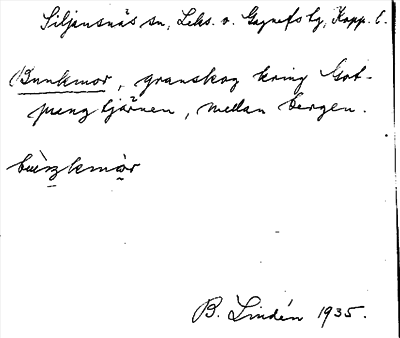 Siljansnäs sn, Leks. o. Gagnefs tg, Kopp. l.
Bunkmor, granskog kring Got-
pengtjärnen, mellan bergen.
B. Lindén 1935.